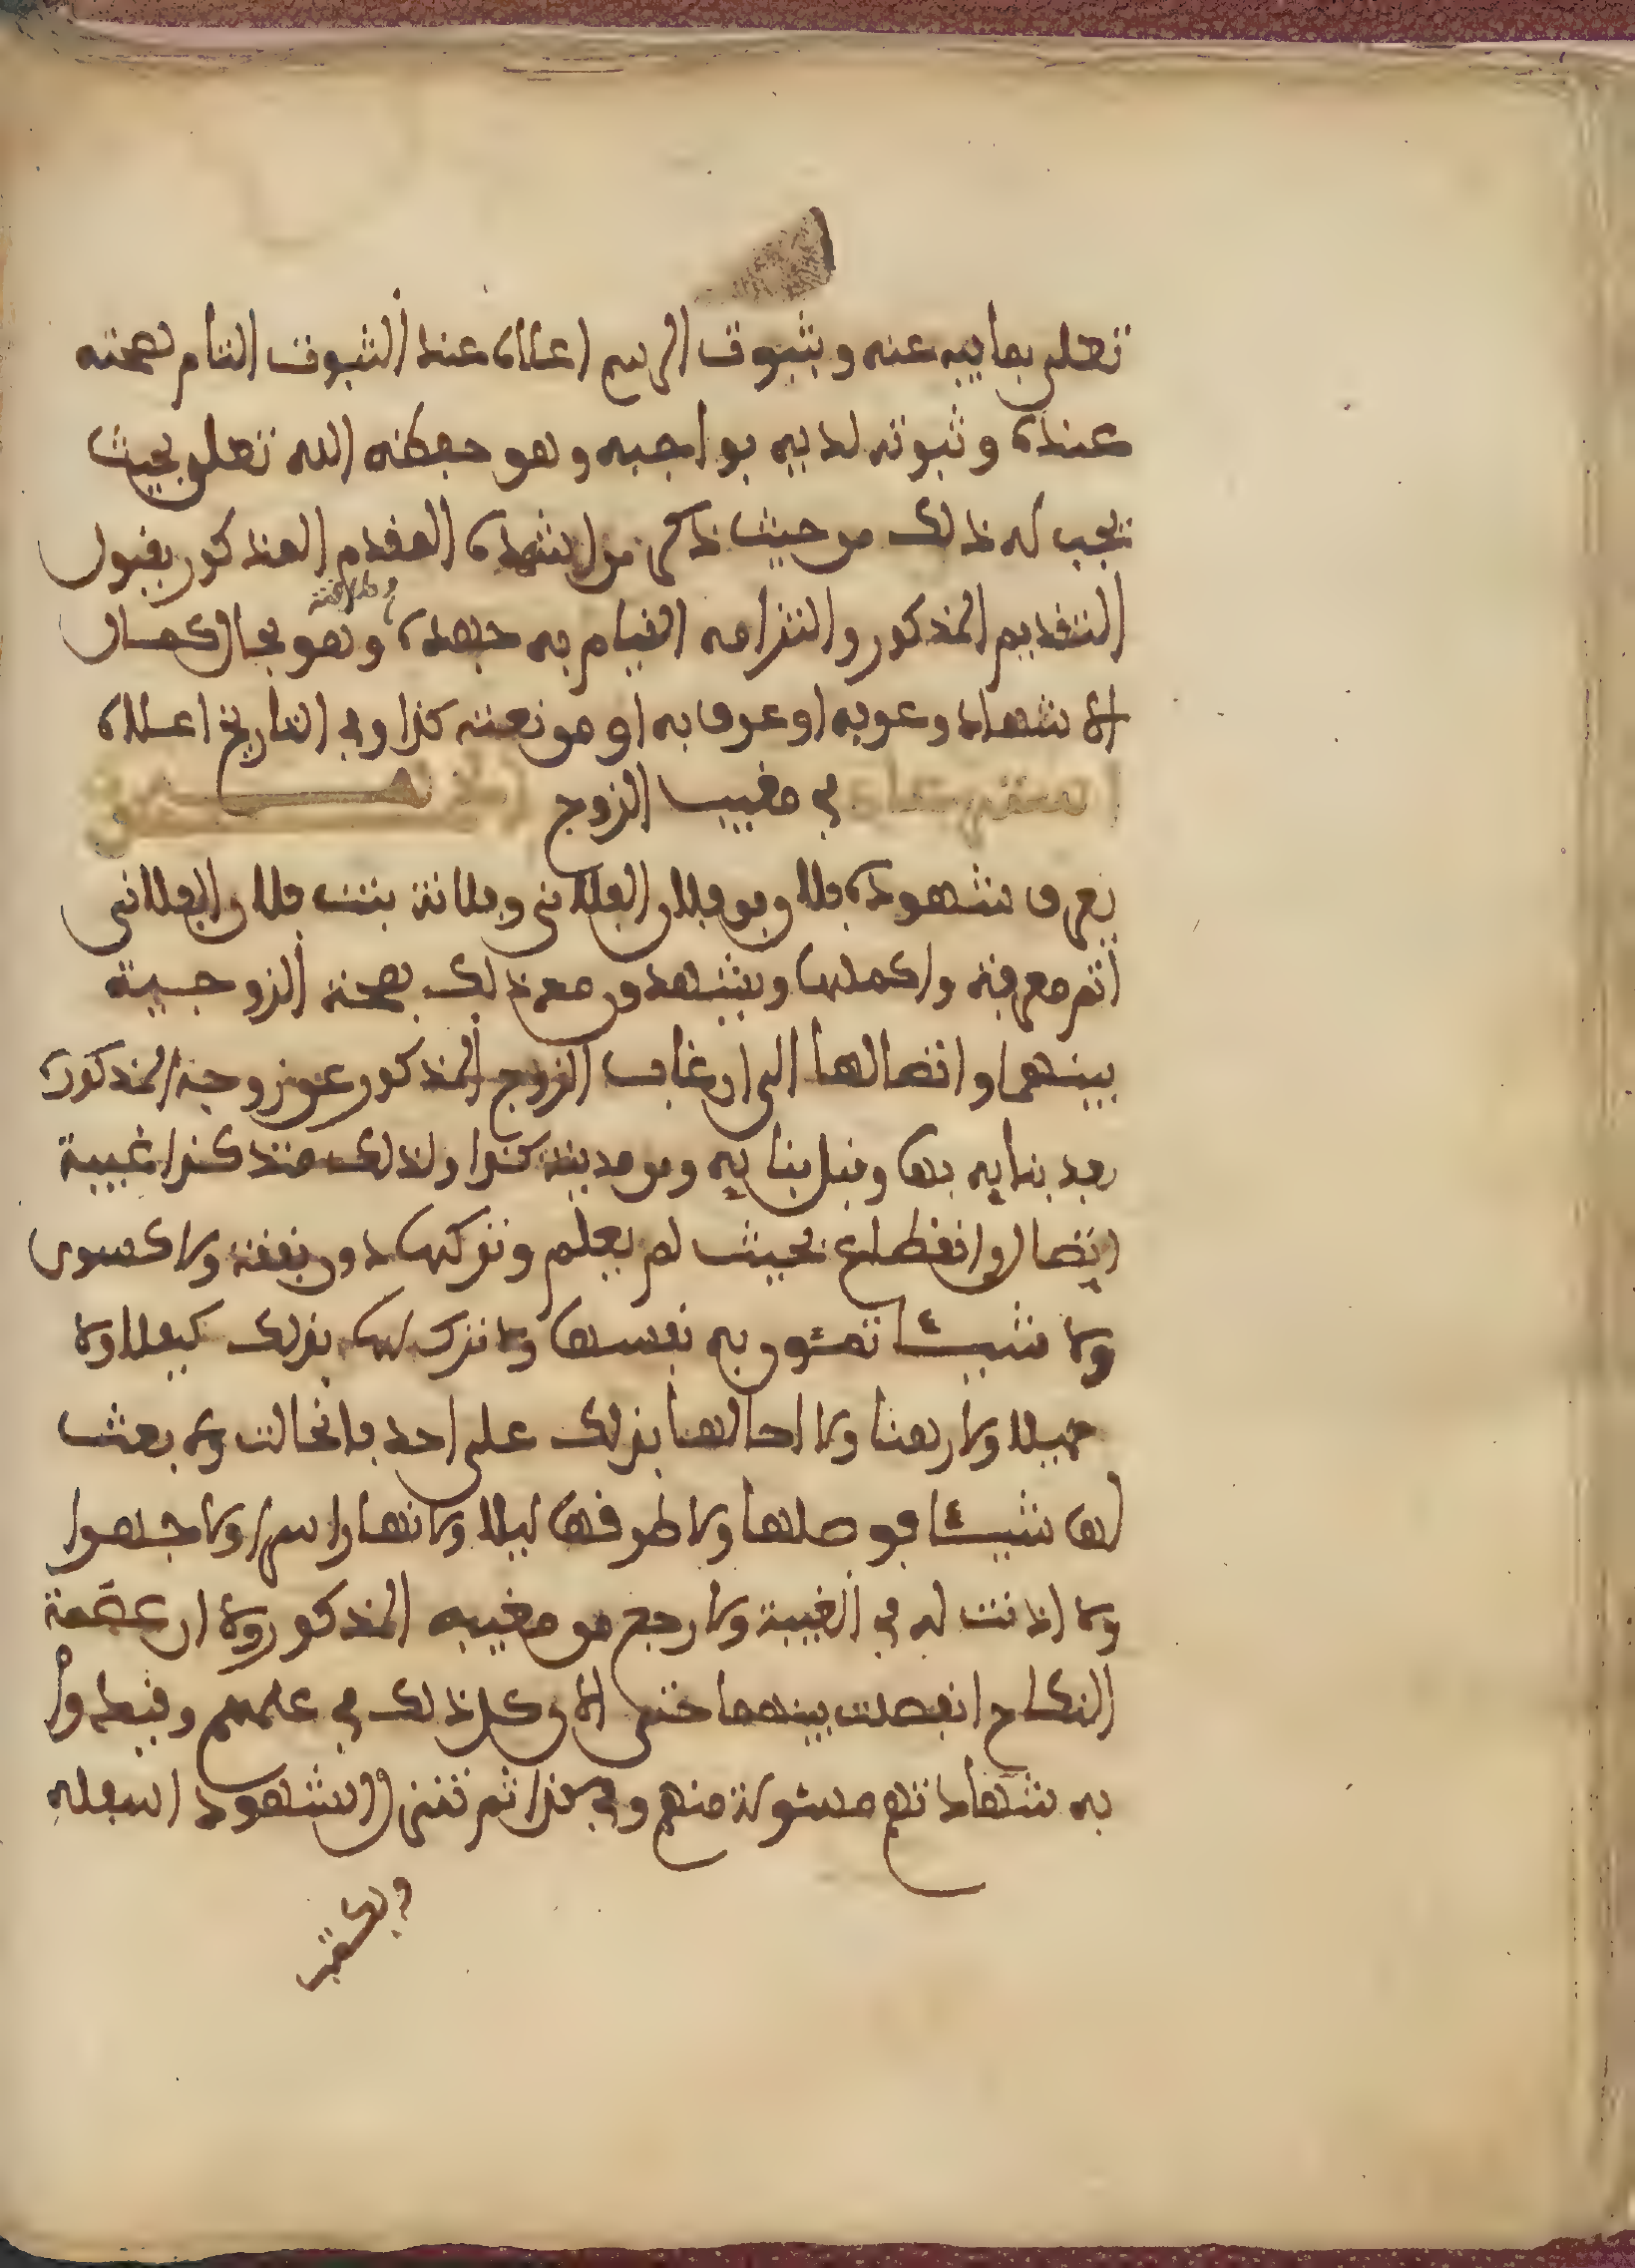 تعلى بما فيه عنه وبثبوت الرسم اعلاه عنده الثبوت التام لصحته
عنده وثبوته لديه بواجبه وهو حفظه الله تعلى بحيث
يجب له ذلك من حيث ذكر من اشهده المقدم المذكور بقبول
التقديم المذكور والتزامه القيام به جهده وهو بحال كمال
الاشهاد وعرفه او عرف به او من نعته كذا وفي التاريخ اعلاه
في مغيب الزوج
يعرف شهوده فلان بن فلان الفلاني وفلانة بنت فلان الفلاني
اتم معرفة واكملها ويشهدون مع ذلك بصحة الزوجية
بينهما واتصالها الى ان غاب الزوج المذكور عن زوجته المذكورة
بعد بنايه بها وقبل بنايه ومن مدينة كذا ولذلك منذ كذا غيبة
اتصال وانقطاع بحيث لم يعلم وتركها دون نفقة ولا كسوى
ولا شيئا تمون به نفسها ولا ترك لها بذلك كفيلا ولا
حميلا ولا رهنا ولا احالها بذلك على احد فانحالت ولا بعث
لها شيئا فوصلها ولا طرقها ليلا ولا نهارا سرا ولا جهرا
ولا اذنت له في الغيبة ولا رجع من مغيبه المذكور ولا ان عصمة
النكاح انفصلت بينهما حتى الان كل ذلك في علمهم وقيدوا
به شهادتهم مسئولة منهم وفي كذا ثم تنزل الشهود اسفله